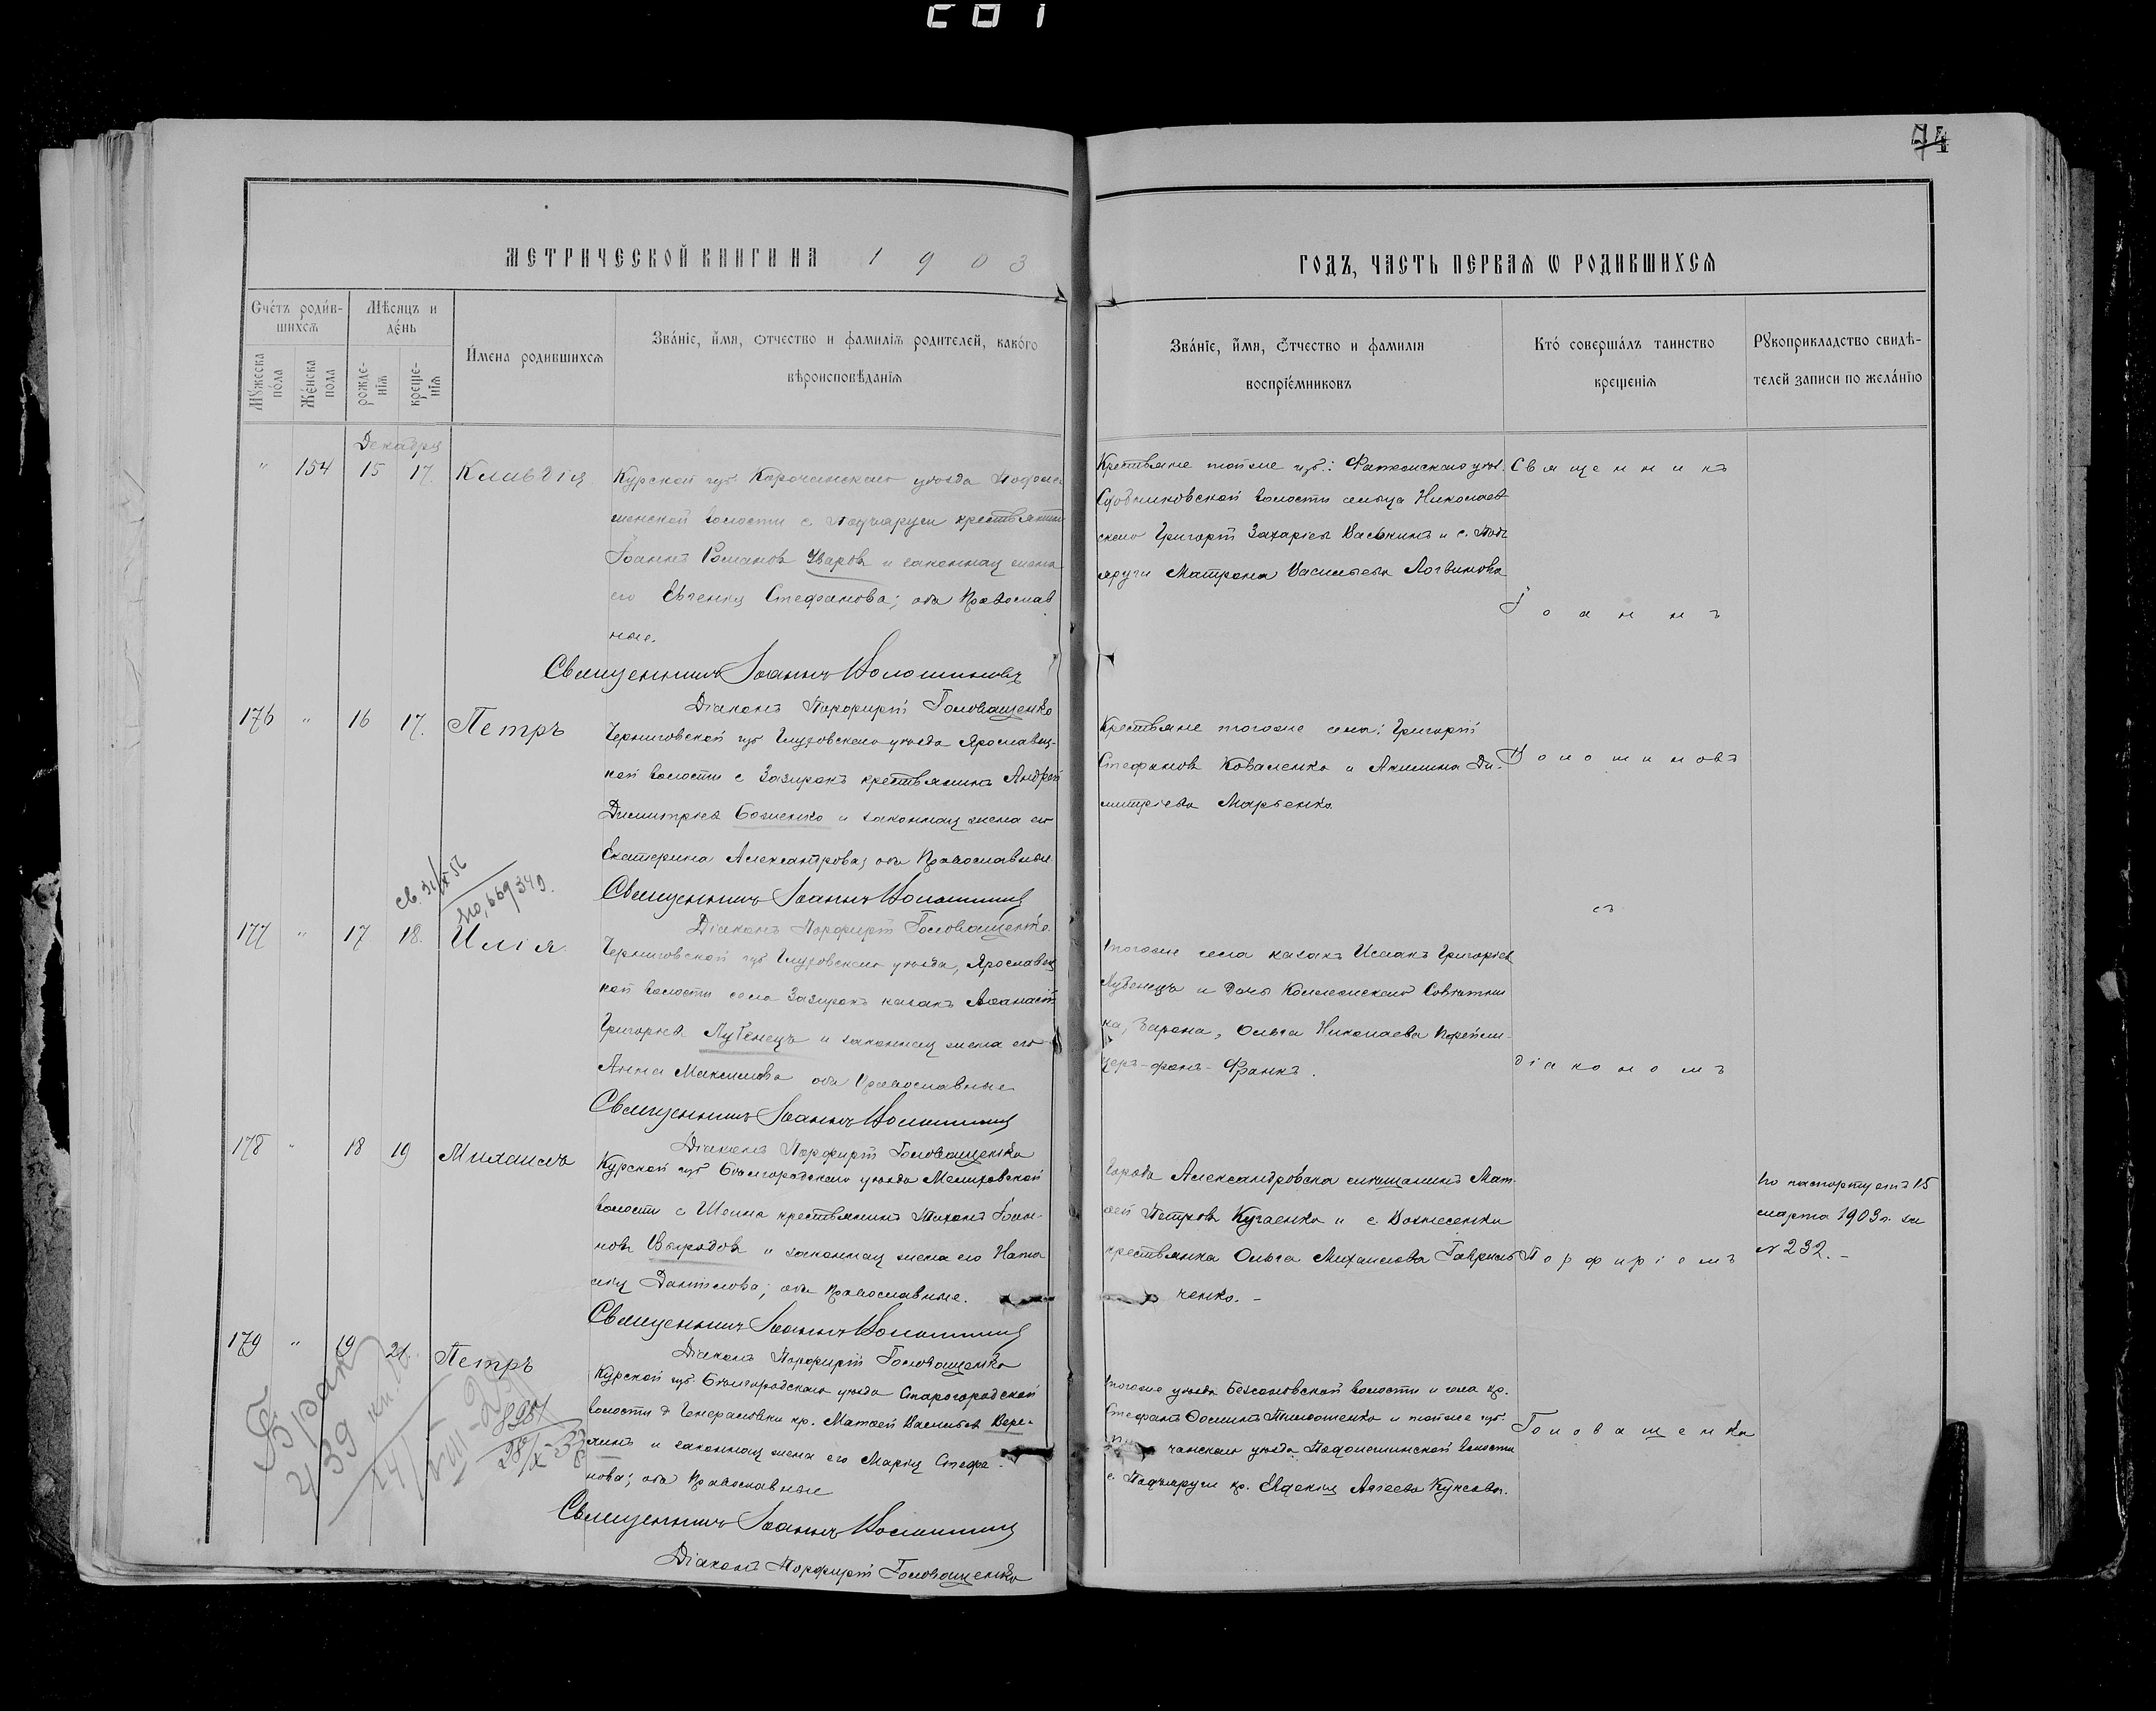 74
МЕТРИЧЕСКОЙ КНИГИ НА 1903
ГОДЪ, ЧАСТЬ ПЕРВАЯ Ѡ РОДИВШИХСЯ
Счетъ родив-
шихся
Мѣсяцъ и
день
Мужеска
пола
Женска
пола
рожде-
нія
креще-
нія
Имена родившихся
Званіе, имя, отчество и фамилія родителей, какого
вѣроисповѣданія
Званіе, имя, отчество и фамилія
воспріемниковъ
Кто совершалъ таинство
крещенія
Рукоприкладство свидѣ-
телей записи по желанію
Декабря
" 154 15 17. Клавдія
Курской губ. Корочанскаго уѣзда
волости с. Подъяруги крестьянинъ
Іоаннъ Романовъ Уваровъ и законная жена
его Евгенія Стефанова; оба Православ
ные.
Священникъ Іоаннъ Волошиновъ
Діаконъ Порфирій Головащенко
Крестьяне тойже губ.: Фатежскаго уѣз.
волости сельца Николаев
скаго Григорій Захаріевъ Васькинъ и с. Подъ
яруги Матрона Васильева Логвинова
176 " 16 17. Петръ
Черниговской губ Глуховскаго уѣзда Ярославец-
кой волости с Зазирокъ крестьянинъ Андрей
Димитріевъ Боженко и законная жена его
Екатерина Александрова; оба Православные
Священникъ Іоаннъ Волошиновъ
Діаконъ Порфирій Головащенко
Крестьяне тогоже села: Григорій
Стефановъ Коваленко и Акилина Ди-
митріева Марченко.
св. 31/X 56
№ 669349.
177 " 17 18. Илія
Черниговской губ Глуховскаго уѣзда, Ярославец
кой волости села Зазирокъ казакъ Аѳанасій
Григорьевъ Лубенецъ и законная жена его
Анна Максимова оба Православные
Священникъ Іоаннъ Волошиновъ
Діаконъ Порфирій Головащенко
тогоже села казакъ Исаакъ Григорьевъ
Лубенецъ и дочь Коллежскаго Совѣтни
ка, барона, Ольга Николаева
церъ-фонъ-Франкъ.
178 " 18 19 Михаилъ
Курской губ Бѣлгородскаго уѣзда Мелиховской
волости с Шеина крестьянинъ Тихонъ Іоан-
новъ Выродовъ и законная жена его Ната
лія Даніилова; оба Православные.
Священникъ Іоаннъ Волошиновъ
Діаконъ Порфирій Головащенко
Города Александровска мѣщанинъ Мат-
ѳей Петровъ Кугаенко и с. Вознесенки
крестьянка Ольга Михаилова Гаврил
ченко. -
По паспорту отъ 15
марта 1903 г. за
№ 232. -
179 " 19 21. Петръ
Курской губ. Бѣлгородскаго уѣзда Старогородской
волости д Генераловки кр. Матѳей Васильевъ Вере-
кинъ и законная жена его Марія Стефа-
нова; оба Православные
Священникъ Іоаннъ Волошиновъ
Діаконъ Порфирій Головащенко
тогоже уѣзда Безсоновской волости и села кр.
Стефанъ Ѳоминъ Тимошенко и тойже губ.
чанскаго уѣзда волости
с. Подъяруги кр. Евдокія Алексѣева
Брак
39
14/VIII-29
895/
28/X-33
Священникъ
Іоаннъ
Волошиновъ
съ
діакономъ
Порфиріемъ
Головащенко